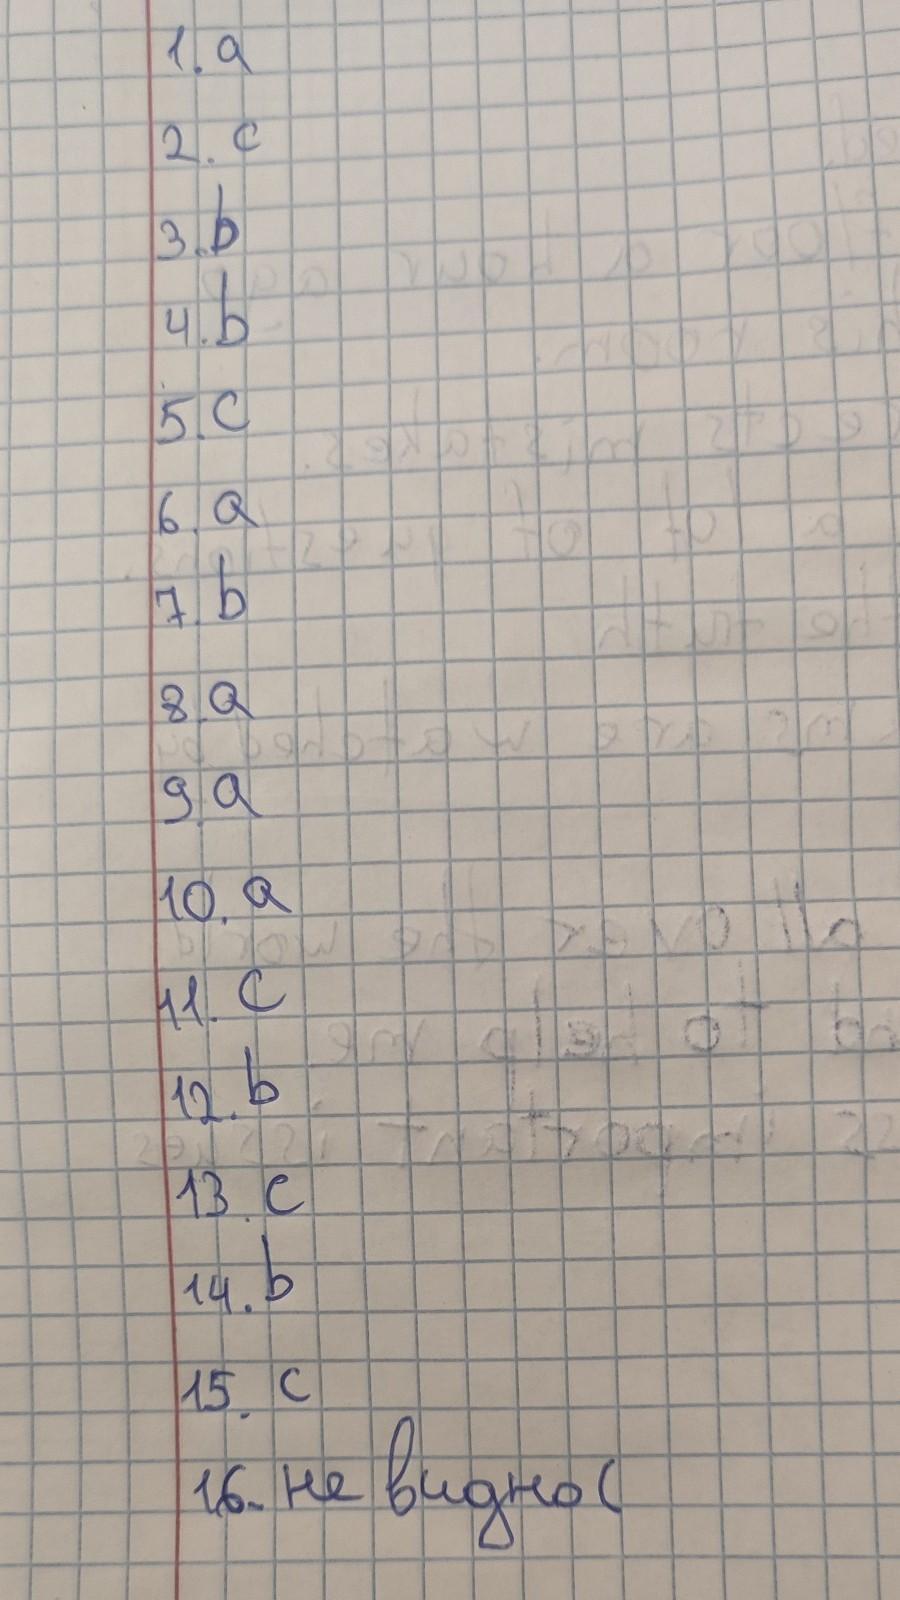 1. a
2. c
3. b
4. b
5. c
6. a
7. b
8. a
9. a
10. a
11. c
12. b
13. c
14. b
15. c
16. не видно(